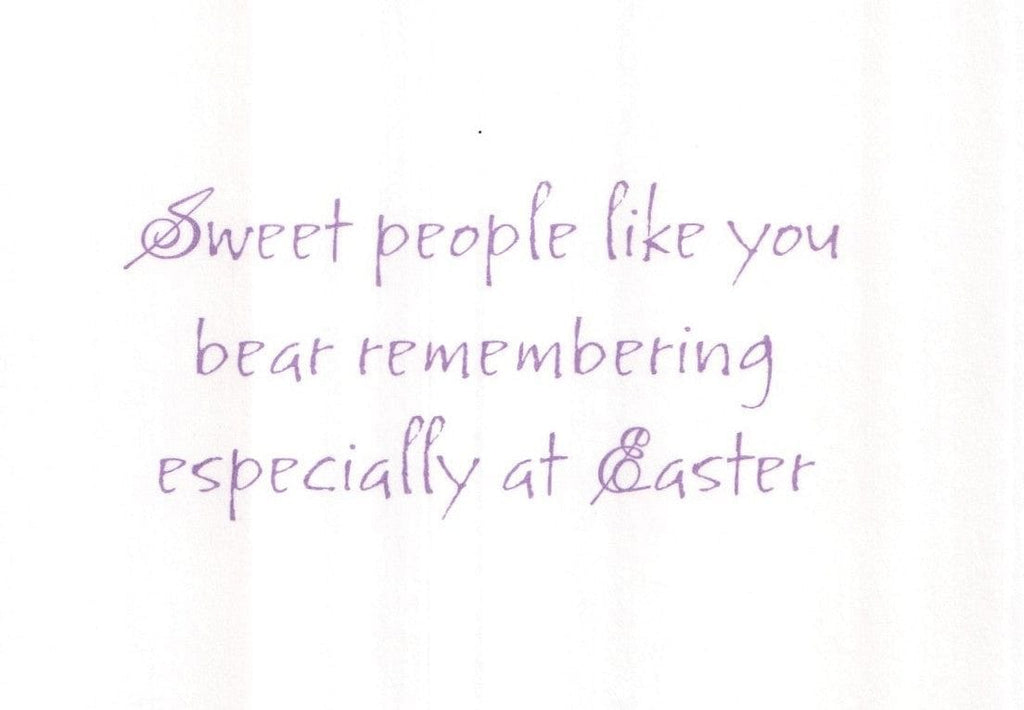 Sweet people like you
bear remembering
especially at Easter